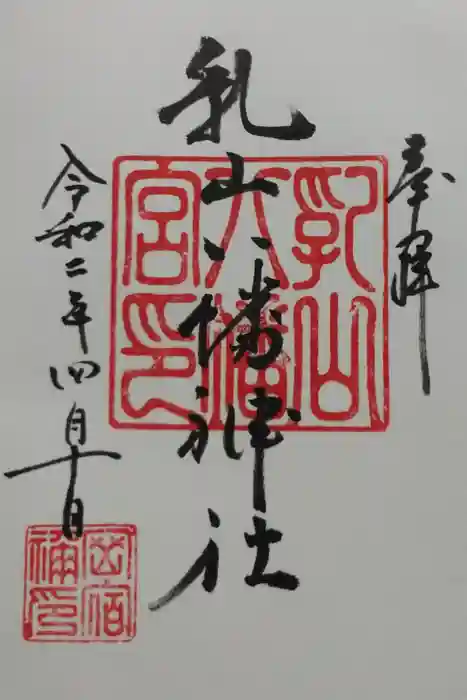 奉拝
乳山八幡神社
乳山
八幡
宮印
令和二年四月十日